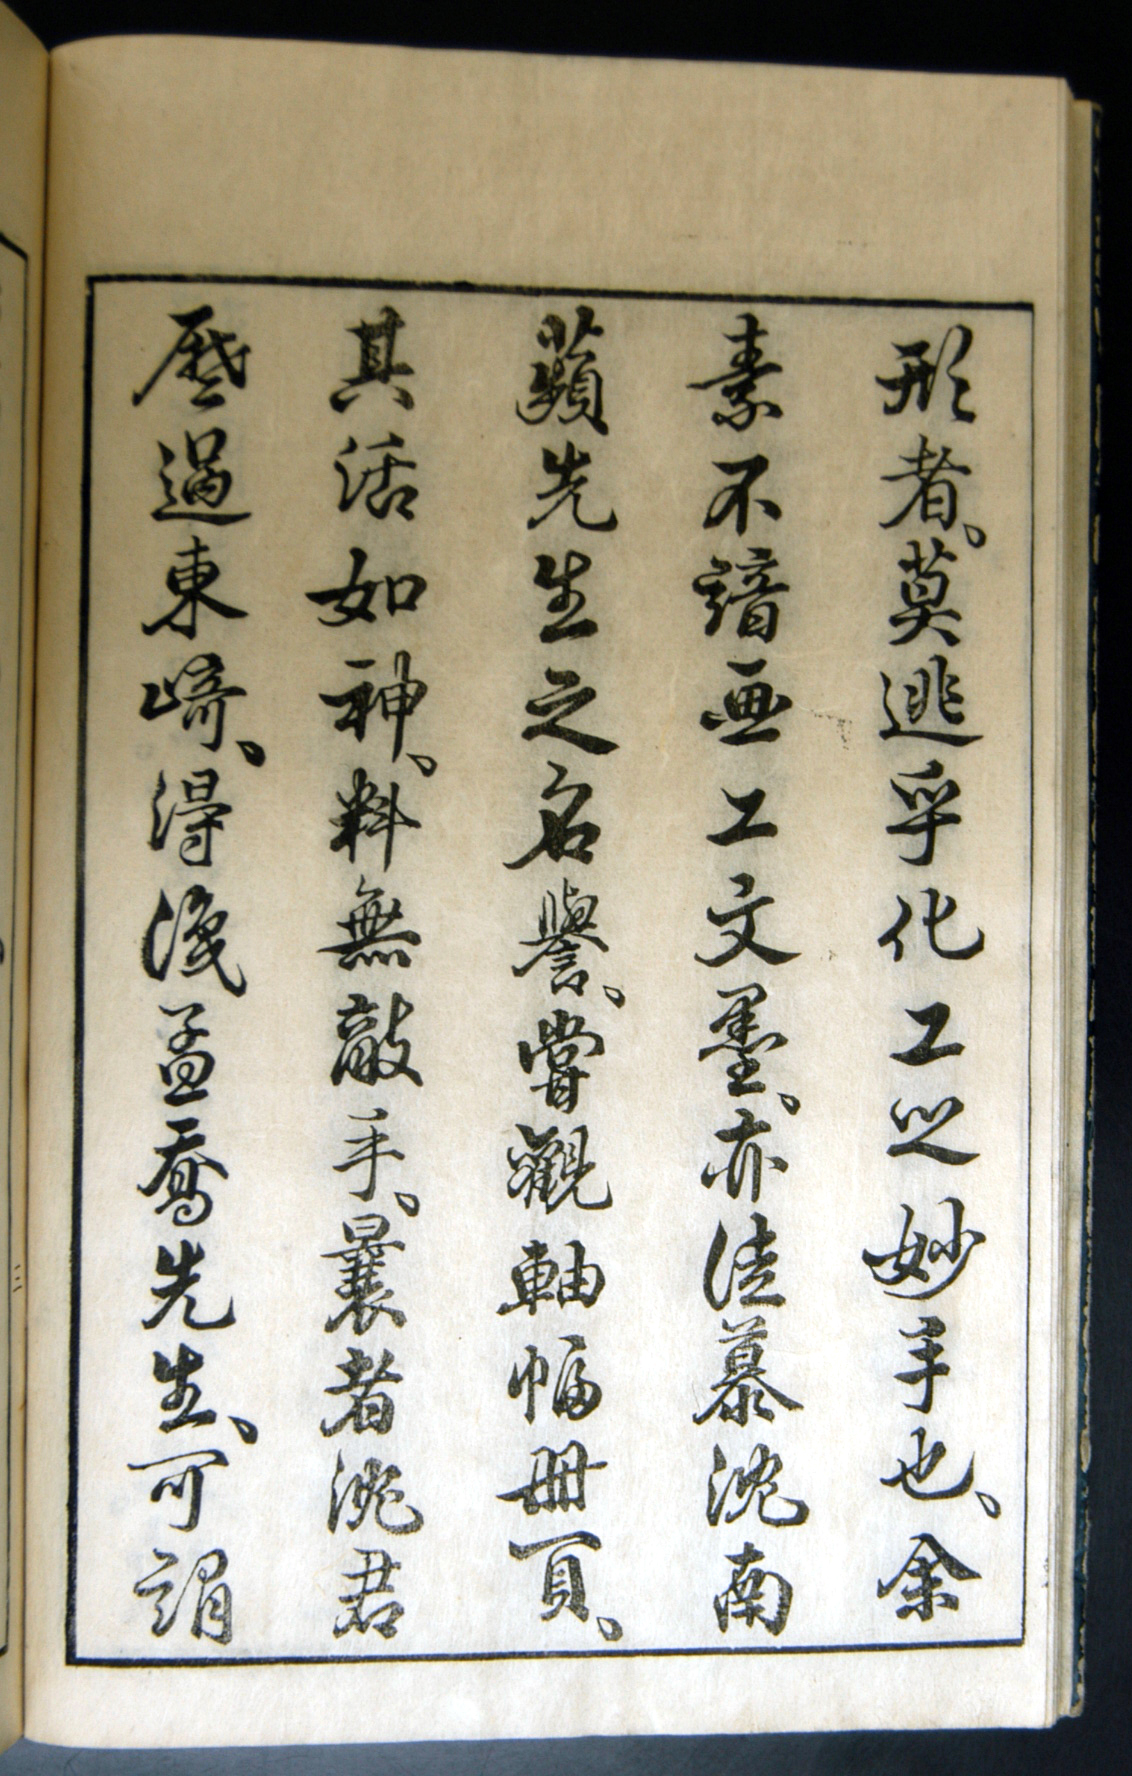 形者、莫逃乎化工之妙手也、余
素不諳画工文墨、亦徒慕沈南
蘋先生之名譽、嘗觀軸幅冊頁、
其活如神、料無敵手、曩者沈君
歴過東崎、得淺孟喬先生、可謂